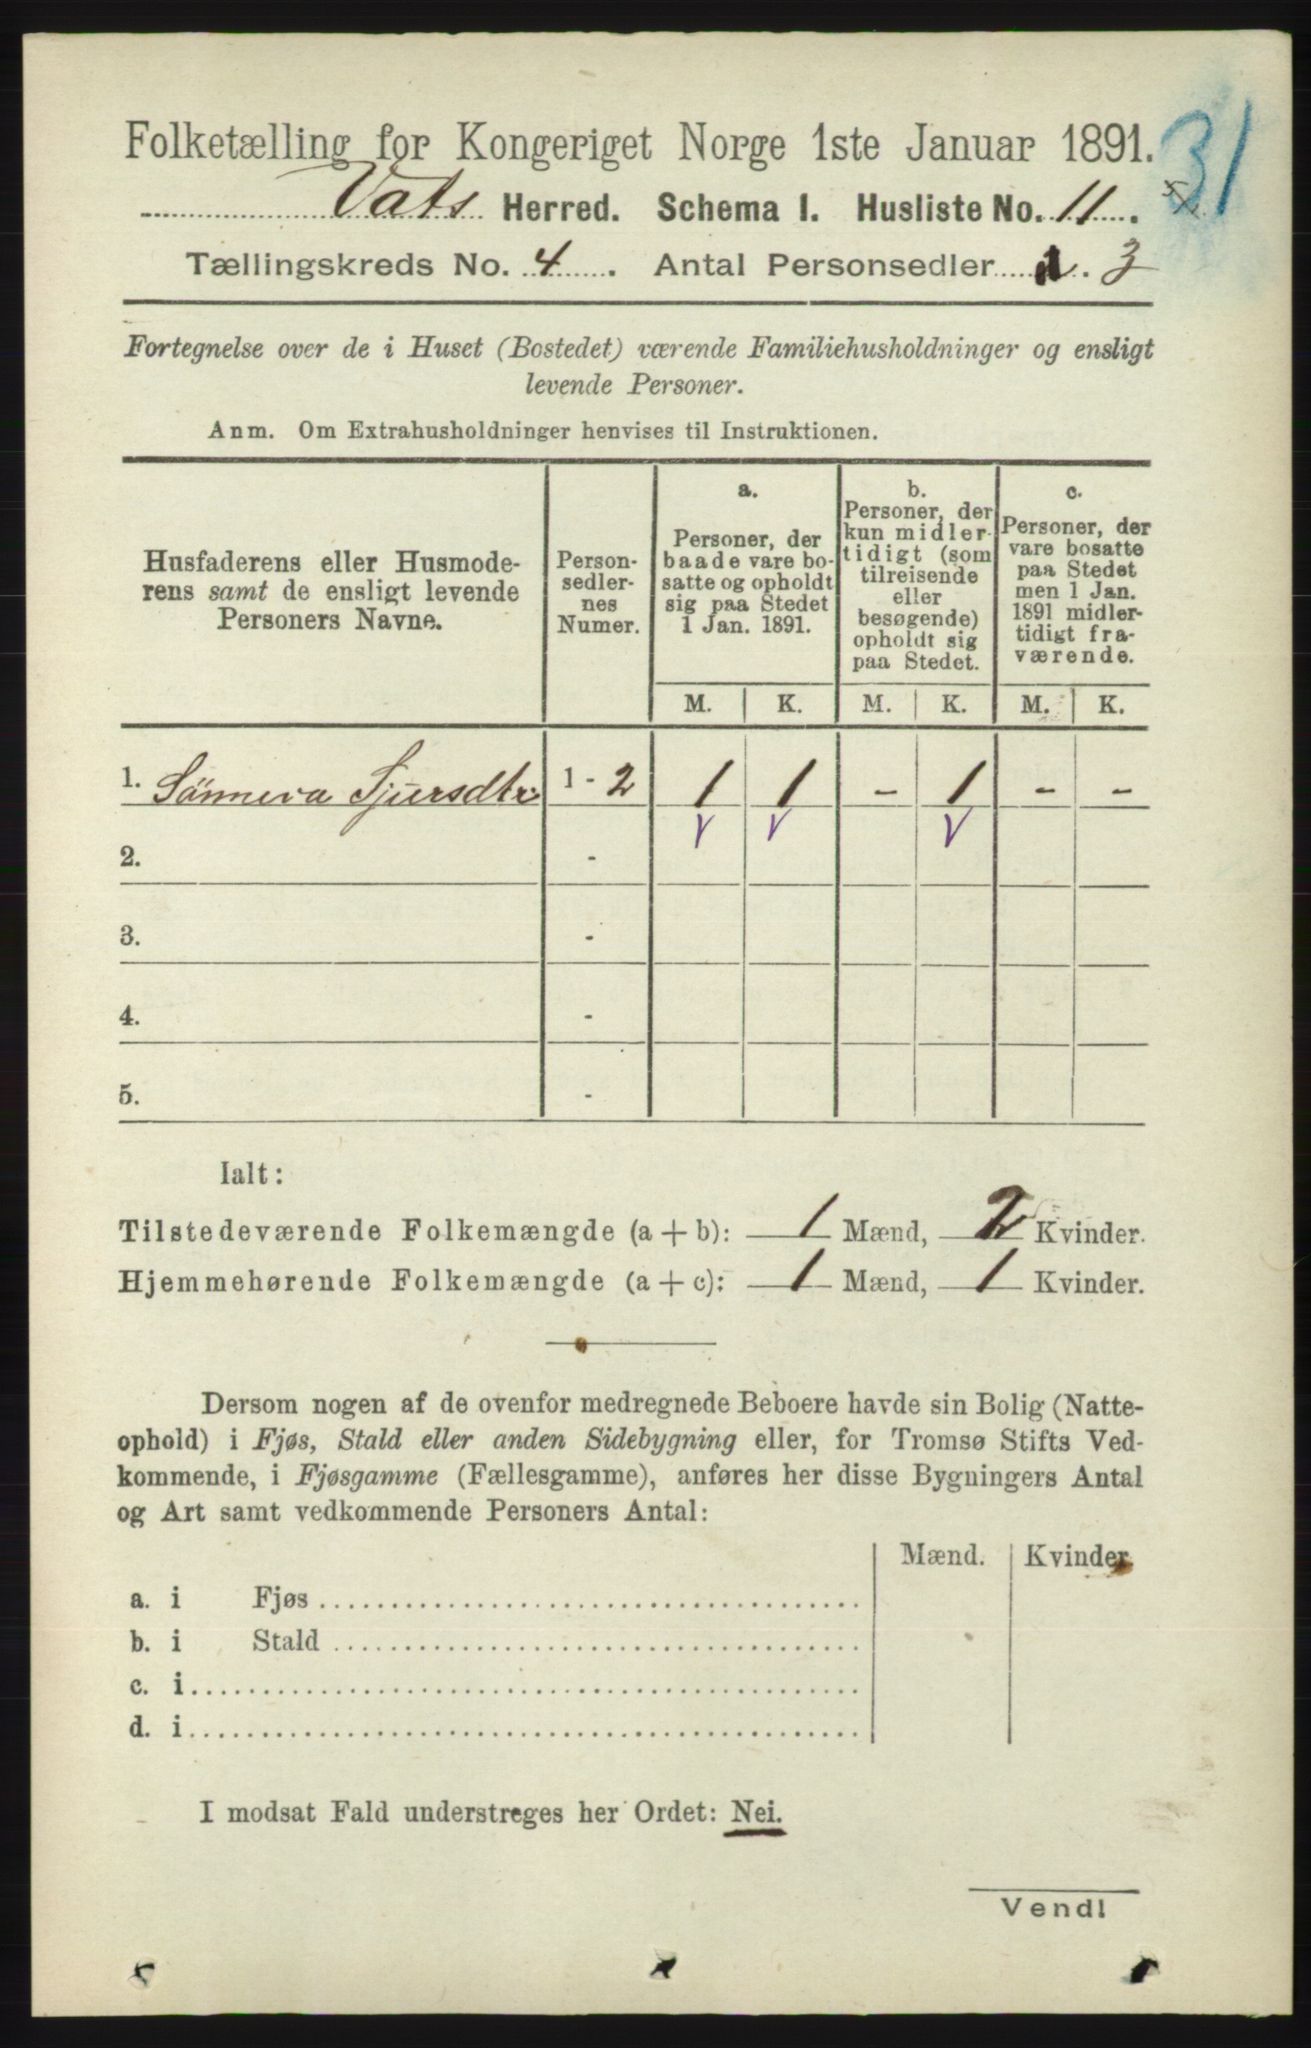 31
Folketælling for Kongeriget Norge 1ste Januar 1891.
Vats Herred. Schema I. Husliste No. 11.
Tællingskreds No. 4. Antal Personsedler 3
Fortegnelse over de i Huset (Bostedet) værende Familiehusholdninger og ensligt
levende Personer.
Anm. Om Extrahusholdninger henvises til Instruktionen.
Husfaderens eller Husmode-
rens samt de ensligt levende
Personers Navne.
Person-
sedler-
nes
Numer.
a.
Personer, der
baade vare bo-
satte og opholdt
sig paa Stedet
1 Jan. 1891.
b.
Personer, der
kun midler-
tidigt (som
tilreisende
eller
besøgende)
opholdt sig
paa Stedet.
c.
Personer, der
vare bosatte
paa Stedet
men 1 Jan.
1891 midler-
tidigt fra-
værende.
M. K. M. K. M. K.
1. Sönneva Sjursdtr 1 - 2 1 1 - 1 - -
2. -
3. -
4. -
5. -
Ialt:
Tilstedeværende Folkemængde (a + b): 1 Mænd, 2 Kvinder.
Hjemmehørende Folkemængde (a + c): 1 Mænd, 1 Kvinder.
Dersom nogen af de ovenfor medregnede Beboere havde sin Bolig (Natte-
ophold) i Fjøs, Stald eller anden Sidebygning eller, for Tromsø Stifts Ved-
kommende, i Fjøsgamme (Fællesgamme), anføres her disse Bygningers Antal
og Art samt vedkommende Personers Antal:
Mænd. Kvinder.
a. i Fjøs
b. i Stald
c. i
d. i
I modsat Fald understreges her Ordet: Nei.
Vend!